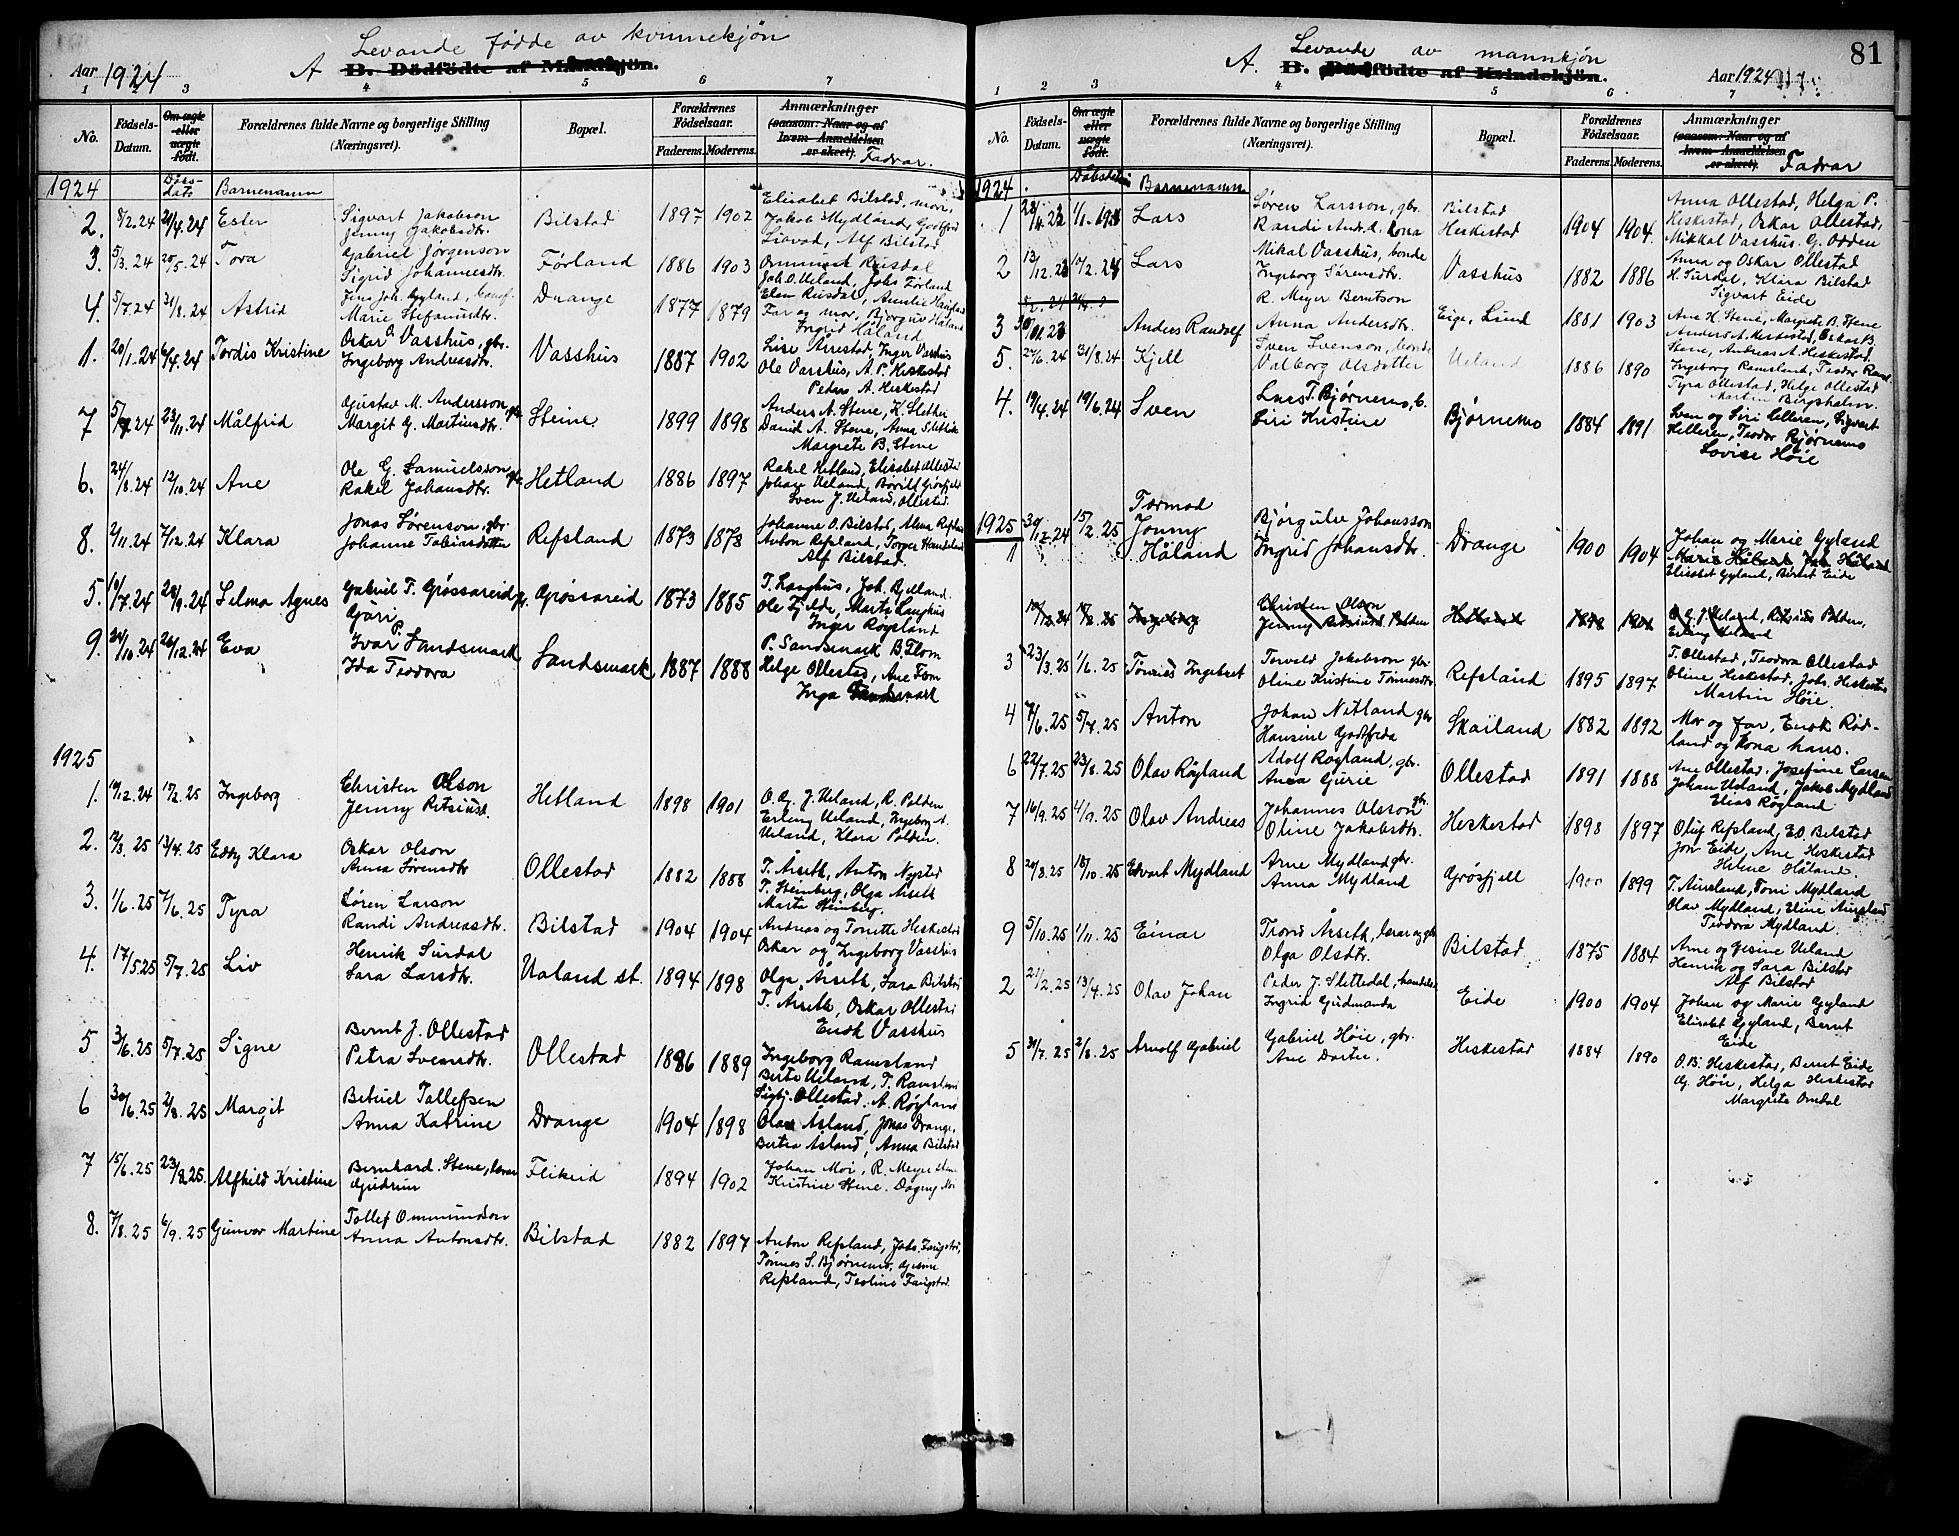 Levande fødde av kvinnekjön
Aar 1924
A B. Dödfödte af Mandkjön.
1 2 3 4 5 6 7
No.
Födsels-Datum.
Om ægte eller uægte födt.
Forældrenes fulde Navne og borgerlige Stilling (Næringsvei).
Bopæl.
Forældrenes Födselsaar.
Faderens. Moderens.
Anmærkninger (saasom: Naar og af hvem Anmeldelsen er skeet). Fadrar.
1924 Dåps-dato Barnenamn
2. 8/2.24 21/4.24 Ester
Sigvart Jakobson
Jenny Jakobsdtr.
Bilstad 1897 1902
Elisabet Bilstad, mor,
Jakob Mydland, Gottfred
Liavod, Alf Bilstad
3. 5/3.24 25/5.24 Tora
Gabriel Jørgenson
Sigrid Johannesdtr.
Førland 1886 1903
Ommund Rusdal
Joh. O. Ueland, Johs Förland
Elen Rusdal, Amelie Haugland
4. 5/7.24 31/8.24 Astrid
Jens Joh. Gyland,
Marie Stefanusdtr.
Drange 1877 1879
Far og mor, Bjorgulv Håland
Ingrid Håland
1. 20/1.24 6/4.24 Tordis Kristine
Oskar O. Vasshus, gbr.
Ingeborg Andreasdtr.
Vasshus 1887 1902
Lise Årrestad, Inger Vasshus
Ole Vasshus, A. P. Heskestad
Peder A. Heskestad
7 5/9.24 23/11.24 Målfrid
Gustav M. Andersson, gbr.
Margit G. Martinsdtr.
Steine 1899 1898
Anders A. Stene, K. Slethei
David A. Stene, Anna Slethei
Margrete B. Stene
6. 24/8.24 12/10.24 Ane
Ole G. Samuelsson gbr.
Rakel Johansdtr.
Hetland 1886 1897
Rakel Hetland, Elisabet Ollestad
Johan Ueland, Borild Grösfjeld
Sven J. Ueland, Ollestad.
8. 2/11.24 7/12.24 Klara
Jonas Sørenson, gbr.
Johanne Tobiasdotter
Refsland 1873 1878
Johanne O. Bilstad, Alma Refsland
Anton Refsland, Torger Haukeland
Alf Bilstad.
5. 10/7.24 28/9.24 Selma Agnes
Gabriel T. Grøssareid g.
Gjøri
Grøssareid 1873 1885
T. Laughus, Joh. Rjelland.
Ole Fjelde, Marta Laughus
Inger Røgeland
9. 24/10.24 26/12.24 Eva
Ivar P. Sandsmark
Ida Teodora
Sandsmark 1887 1888
P. Sandsmark B. Flom
Helge Ollestad, Ane Flom
Inga Sandsmark
1925
1. 19/12.24 15/2.25 Ingeborg
Christen Olson
Jenny Retsiusd.
Hetland 1898 1901
O. G. J. Ueland, R. Polden
Erling Ueland, Ingeborg A.
Ueland, Klara Polden.
2. 12/3.25 13/4.25 Eddy Klara
Oskar Olson
Anna Sörensdtr
Ollestad 1882 1888
T. Årseth, Anton Nystad
T. Steinberg, Olga Årseth
Marta Steinberg.
3. 1/6.25 7/6.25 Tyra
Søren Larson
Randi Andreasdtr.
Bilstad 1904 1904
Andreas og Tonette Heskestad
Oskar og Ingeborg Vasshus
4. 17/5.25 5/7.25 Liv
Henrik Surdal
Sara Larsdtr.
Ualand st. 1894 1898
Olga Årseth, Sara Bilstad
T. Årseth, Oskar Ollestad
Enok Vasshus
5 3/6.25 5/7.25 Signe
Bernt J. Ollestad
Petra Svensdtr.
Ollestad 1886 1889
Ingeborg Ramsland
Berta Ueland, T. Ramsland
Sigbj. Ollestad. A. Røyland
6 30/6.25 2/8.25 Margit
Betuel Tollefsen
Anna Katrine
Drange 1904 1898
Olav Åsland, Jonas Drange,
Bertea Åsland, Anna Bilstad
7 15/6.25 23/8.25. Alfhild Kristine
Bernhard Stene, lærar
Gudrun
Flikeid 1894 1902
Johan Moi, R. Meyer
Kristine Stene. Dagny Moi
8. 7/8.25 6/9.25 Gunvor Martine
Tollef Ommundson
Anna Antonsdtr.
Bilstad 1882 1897
Anton Refsland, Johs. Faugstad,
Tønnes S. Bjørnemo, Gjesine
Refsland, Teoline Faugstad.
Levande av mannkjön
81
A. B. Dödfödte af Kvindekjön.
Aar 1924
1 2 3 4 5 6 7
No.
Födsels-Datum.
Om ægte eller uægte födt.
Forældrenes fulde Navne og borgerlige Stilling (Næringsvei).
Bopæl.
Forældrenes Födselsaar.
Faderens. Moderens.
Anmærkninger (saasom: Naar og af hvem Anmeldelsen er skeet). Fadrar
1924 Dåbsdato Barnenamn
1 28/11.23 1/1.1924 Lars
Søren Larsson, gbr.
Randi Andr.d. kona
Bilstad
Heskestad
1904 1904
Anna Ollestad, Helga P.
Heskestad, Oskar Ollestad,
Mikkal Vasshus. G. Odden
2 13/12.23 17/2.24 Lars
Mikal Vasshus, bonde
Ingeborg Sørensdtr.
Vasshus 1882 1886
Anna og Oskar Ollestad
H. Surdal, Klara Bilstad
Sigvart Eide
3 30/11.23 Anders Randolf
R. Meyer Berntson
Anna Andersdtr.
Eige, Lund 1881 1903
Ane H. Stene, Margrete B. Stene
Anders A. Heskestad, Oskar B.
Stene, Andreas A. Heskestad.
5. 27/6.24 31/8.24 Kjell
Sven Svenson, bonde
Valborg Olsdotter
Ueland 1886 1890
Ingeborg Ramsland, Teodor Ramsl.
Tyra Ollestad, Helge Ollestad
Martin Birgshalm.
4. 19/4.24 19/6.24 Sven
Lars T. Bjørnemo, b.
Siri Kristine
Bjørnemo 1884 1891
Sven og Siri Helleren, Sigvart
Helleren, Teodor Bjørnemo
Lovise Høie
1925
1 30/12.24 15/2.25 Tormod Jonny Håland
Bjørgulv Johansson
Ingrid Johansdtr.
Drange 1900 1904
Johan og Marie Gyland
Marie Håland Joh. Håland
Elisabet Gyland, Bernt Eide
19/12.24 15/2.25 Ingeborg
Christen Olson
Jenny Retsiusd Polden
Hetland 1898 1901
O. G. J. Ueland, Retsius Polden,
Erling Ueland
3 23/3.25 1/6.25 Tønnes Ingebret
Torvald Jakobson gbr.
Oline Kristine Tönnesdtr
Refsland 1895 1897
T. Ollestad, Teodora Ollestad
Oline Heskestad, Johs. Heskestad
Martin Høie.
4 7/6.25 5/7.25 Anton
Johan Netland gbr
Hansine Godtfreda
Skåiland 1882 1892
Mor og far, Enok Rød-
land og kona hans.
6 22/7.25 23/8.25 Olav Røyland
Adolf Røyland, gbr.
Anna Gurie
Ollestad 1891 1888
Ane Ollestad. Josefine Larsen
Johan Ueland, Jakob Mydland
Elias Røyland
7 16/9.25 4/10.25 Olav Andreas
Johannes Olsson gbr.
Oline Jakobsdtr.
Heskestad 1898 1897
Oluf Refsland, E.O. Bilstad
Jon Eide, Ane Heskestad
Helene Håland.
8 20/8.25 18/10.25 Edvart Mydland
Arne Mydland gbr.
Anna Mydland
Grösfjell 1900 1899
T. Aursland, Toni Mydland
Olav Mydland, Eline Aursland
Teodora Mydland.
9 5/10.25 1/11.25 Einar
Trond Årseth, lærar og gbr
Olga Olsdtr.
Bilstad 1875 1884
Arne og Gesine Ueland
Henrik og Sara Bilstad
Alf Bilstad
2 21/2.25 13/4.25 Olav Johan
Peder J. Slettedal, handels
Ingrid Gudmunda
Eide 1900 1904
Johan og Marie Gyland
Elisabet Gyland, Bernt
Eide
5 31/7.25 2/8.25 Arnolf Gabriel
Gabriel Høie, gbr.
Ane Dortea.
Heskestad 1884 1890
O.B. Heskestad, Bernt Eide
G. Høie, Helga Heskestad
Margrete Omdal